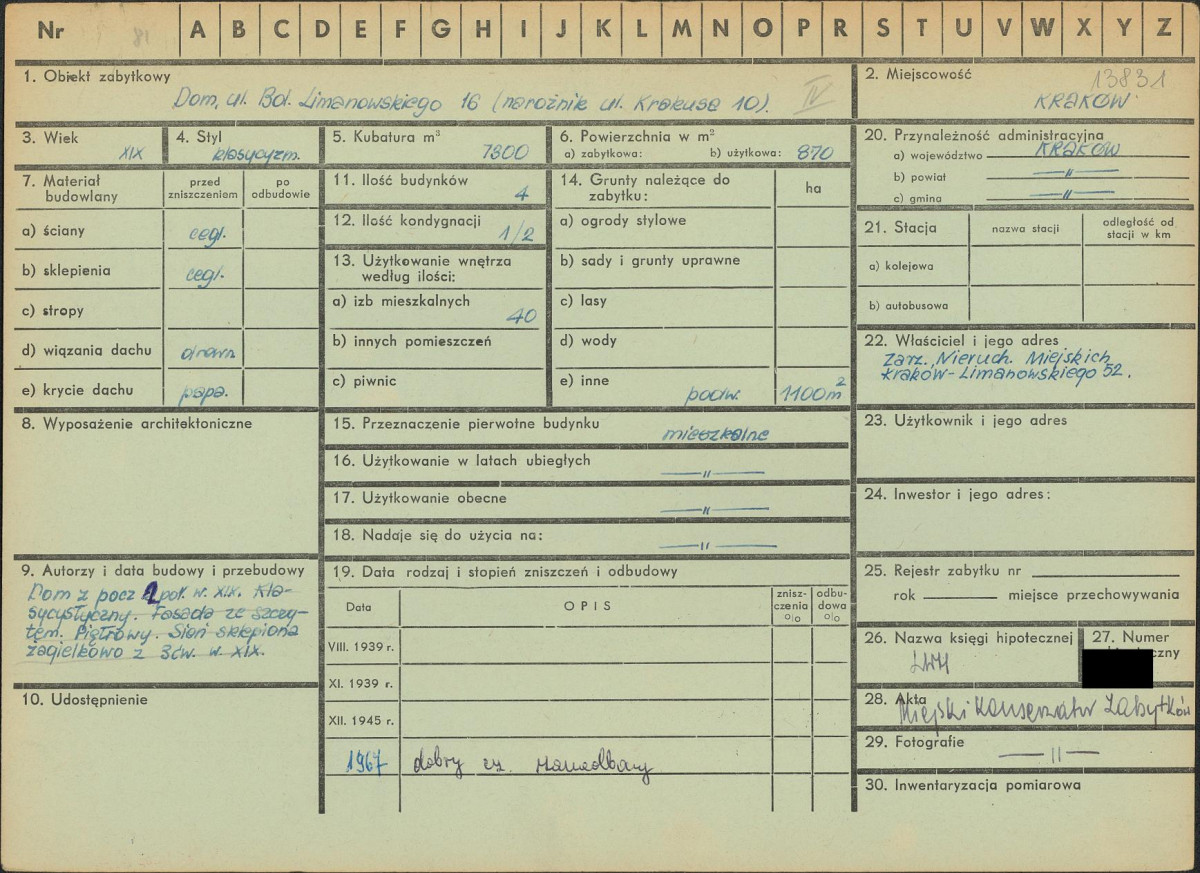 Nr 81 A B C D E F G H I J K L M N O P R S T U V W X Y Z
1. Obiekt zabytkowy
Dom, ul. Bol. Limanowskiego 16 (narożnik ul. Krakusa 10). IV
2. Miejscowość
13831
KRAKÓW
3. Wiek
XIX
4. Styl
klasycyzm.
5. Kubatura m³
7300
6. Powierzchnia w m²
a) zabytkowa: b) użytkowa: 870
20. Przynależność administracyjna
a) województwo KRAKÓW
b) powiat —"—
c) gmina —"—
7. Materiał budowlany
przed zniszczeniem
po odbudowie
a) ściany cegl.
b) sklepienia cegl.
c) stropy
d) wiązania dachu drewn.
e) krycie dachu papa.
11. Ilość budynków
4
12. Ilość kondygnacji
1/2
13. Użytkowanie wnętrza
według ilości:
a) izb mieszkalnych
40
b) innych pomieszczeń
c) piwnic
14. Grunty należące do
zabytku:
ha
a) ogrody stylowe
b) sady i grunty uprawne
c) lasy
d) wody
e) inne
podw. 1100m²
21. Stacja
nazwa stacji
odległość od
stacji w km
a) kolejowa
b) autobusowa
22. Właściciel i jego adres
Zarz. Nieruch. Miejskich
Kraków-Limanowskiego 52.
8. Wyposażenie architektoniczne
15. Przeznaczenie pierwotne budynku mieszkalne
16. Użytkowanie w latach ubiegłych —"—
17. Użytkowanie obecne —"—
18. Nadaje się do użycia na: —"—
23. Użytkownik i jego adres
24. Inwestor i jego adres:
9. Autorzy i data budowy i przebudowy
Dom z pocz 2 poł. w. XIX. Kla-
sycystyczny. Fasada ze szczy-
tem. Piętrowy. Sień sklepiona
żagielkowo z 3 ćw. w. XIX.
10. Udostępnienie
19. Data rodzaj i stopień zniszczeń i odbudowy
Data
OPIS
znisz-
czenia
%
odbu-
dowa
%
VIII. 1939 r.
XI. 1939 r.
XII. 1945 r.
1967 dobry cz.
25. Rejestr zabytku nr
rok miejsce przechowywania
26. Nazwa księgi hipotecznej
LWH
27. Numer
czny
28. Akta
Miejski Konserwator Zabytków
29. Fotografie
—"—
30. Inwentaryzacja pomiarowa